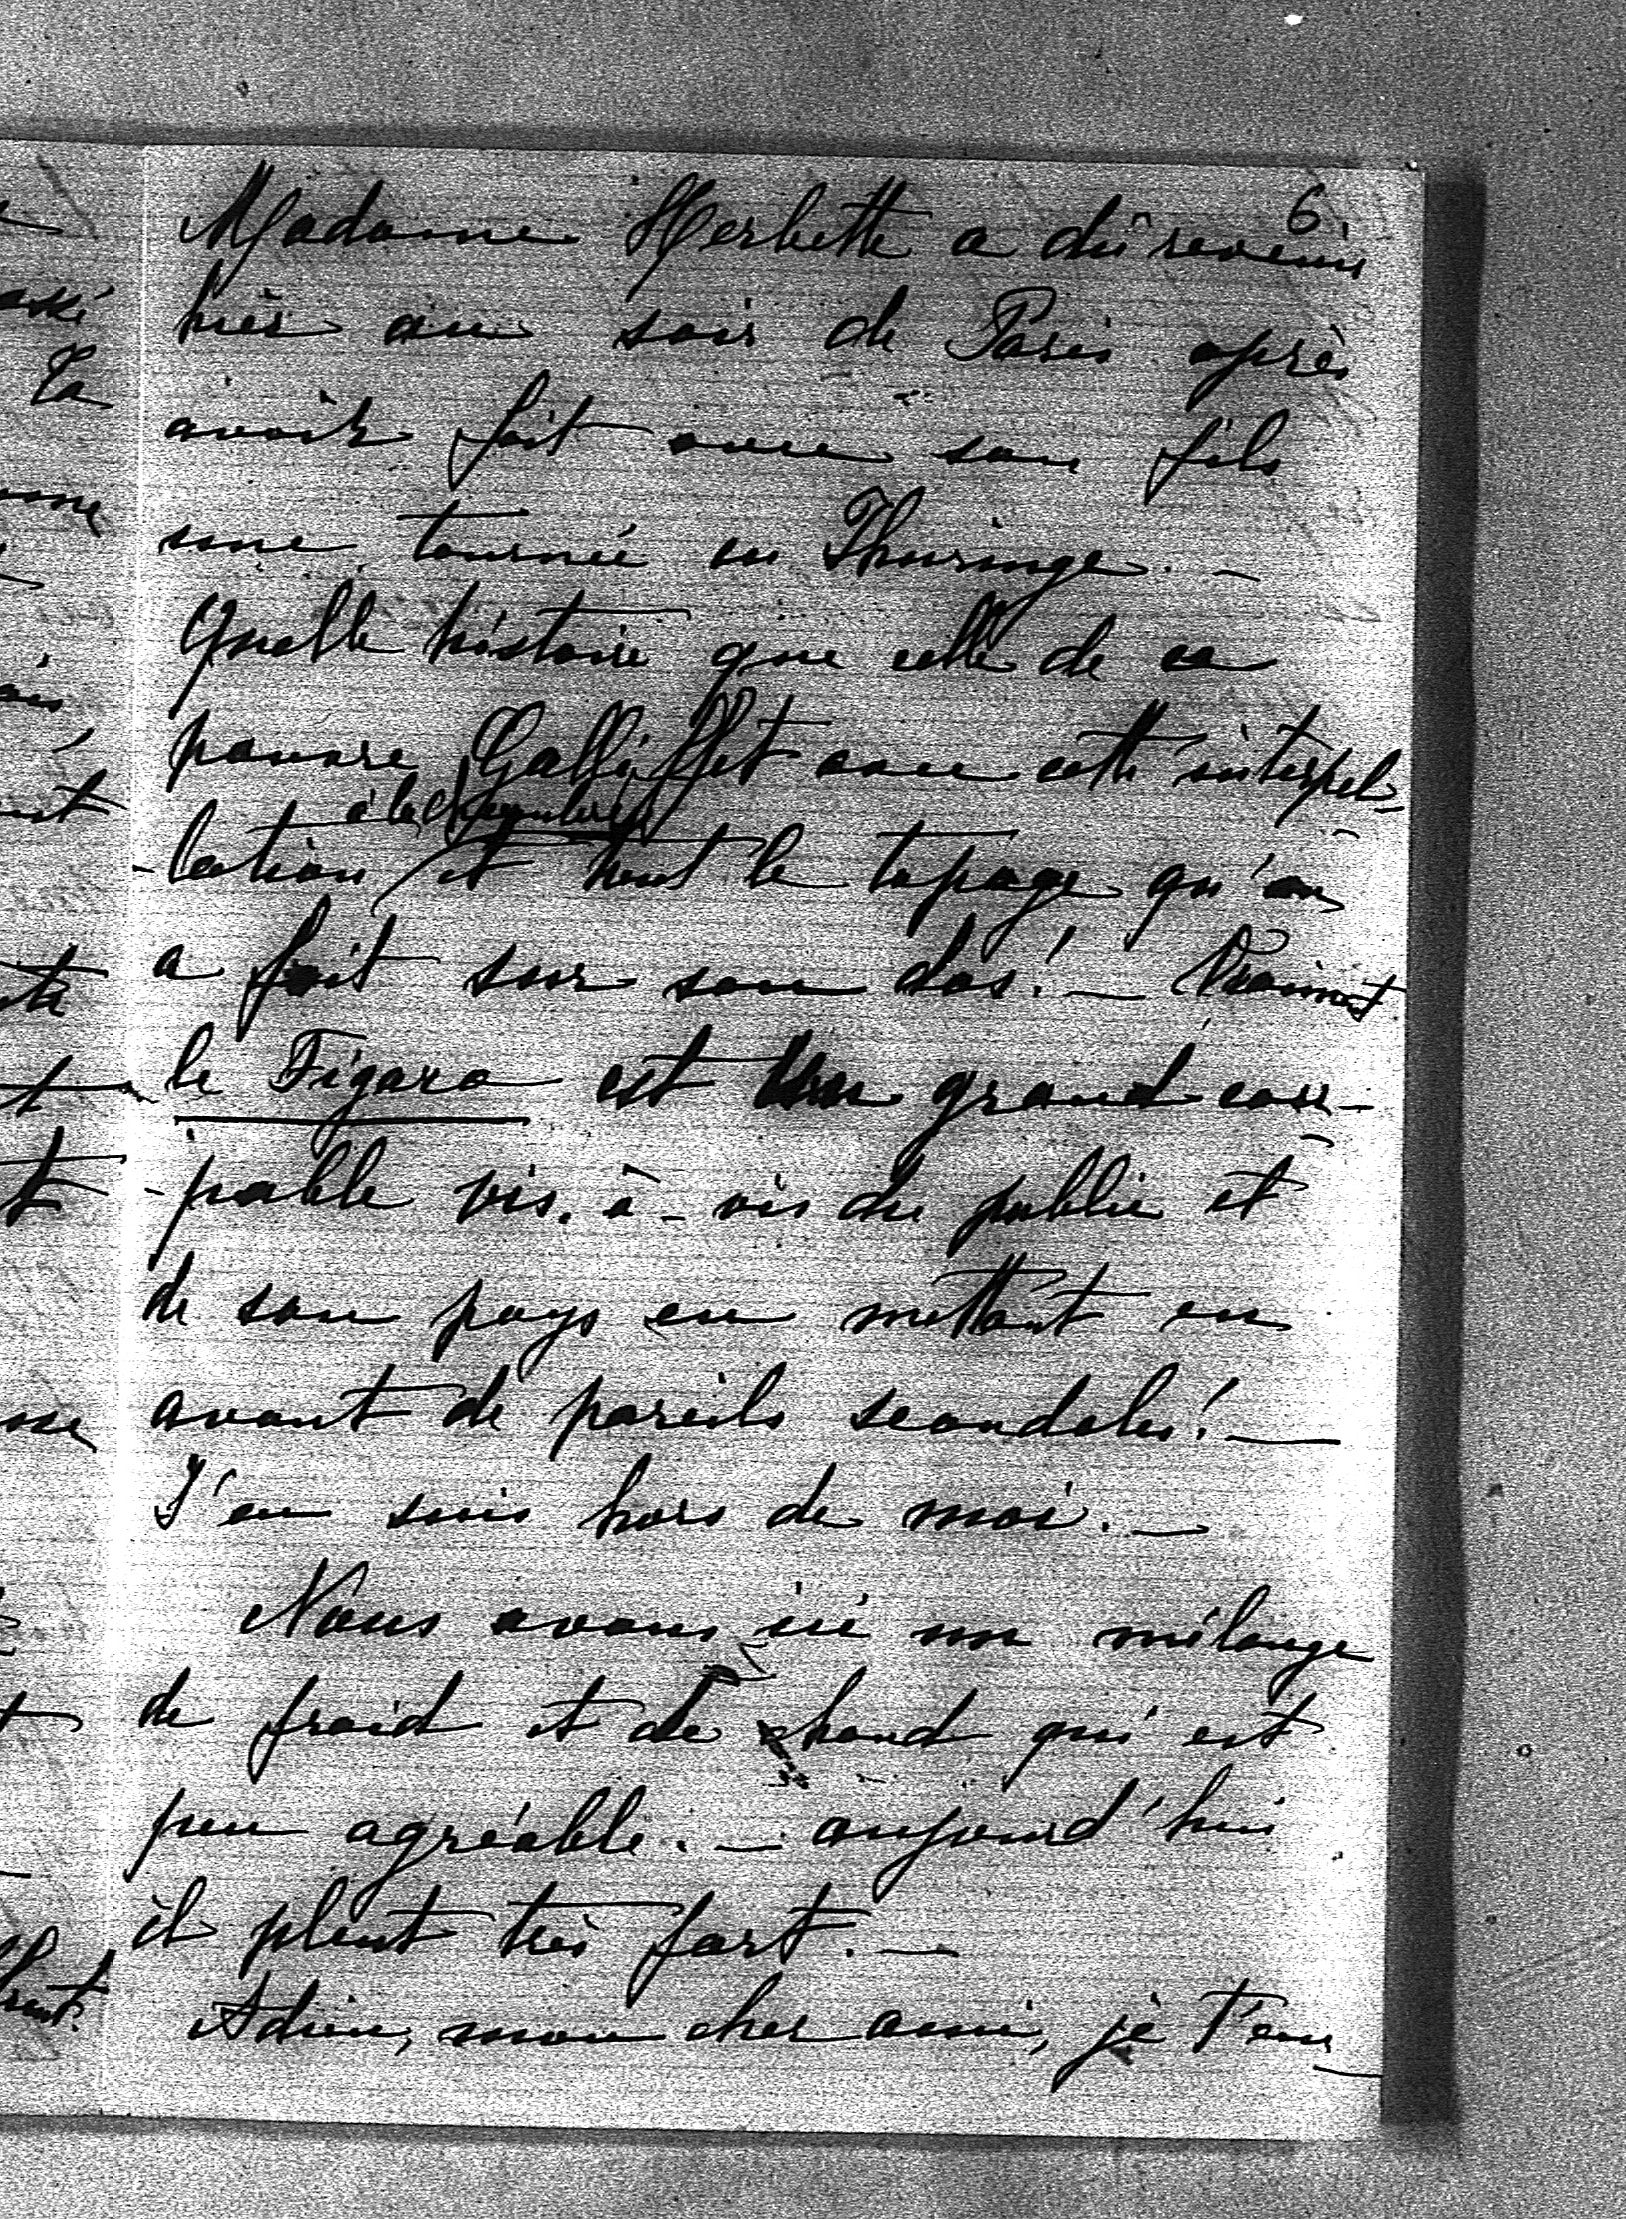 6.
Madame Herbette a dû revenir
hier au soir de Paris après
avoir fait avec son fils
une tournée en Thuringe. —
Quelle histoire que celle de ce
pauvre Galliffet avec cette interpel-
à la chambre
-lation et tout le tapage qu'on
a fait sur son dos! — Vraiment
le Figaro est un grand cou-
-pable vis-à-vis du public et
de son pays en mettant en
avant de pareils scandales! —
J'en suis hors de moi. —
Nous avons ici un mélange
de froid et de chaud qui est
peu agréable. — aujourd'hui
il pleut très fort. —
Adieu, mon cher ami, je t'em-